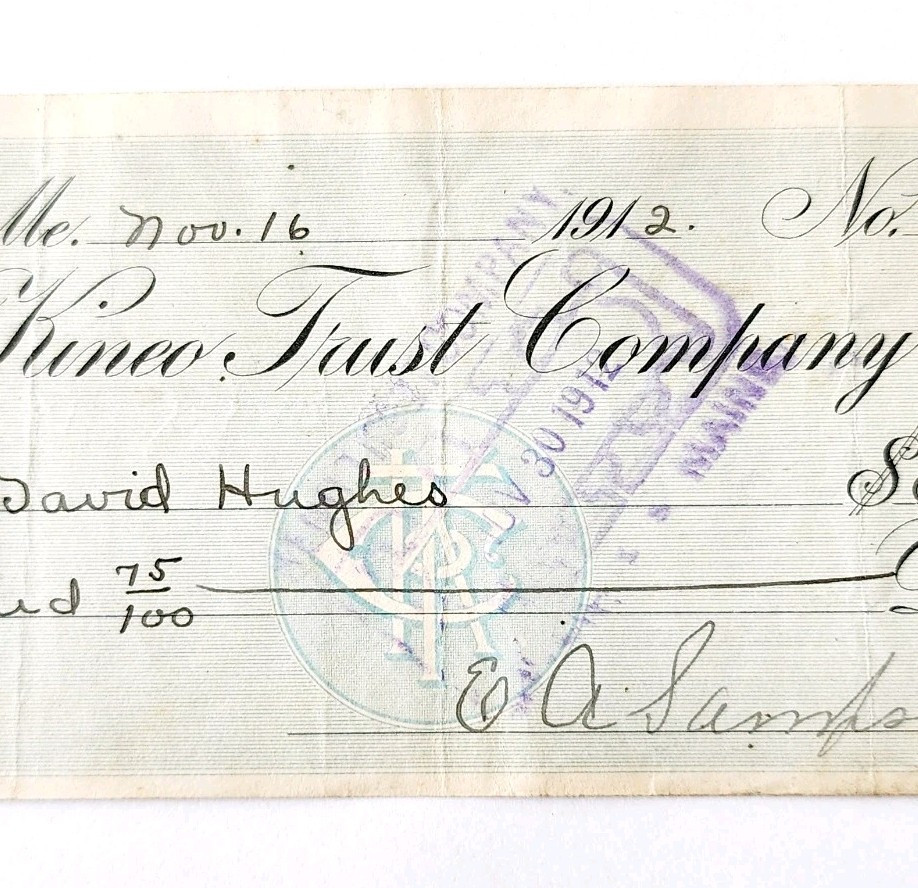 Me. Nov. 16 1912. No.
Kineo Trust Company
David Hughes
75/100
E A Samps
COMPANY
NOV 30 1912
MAINE